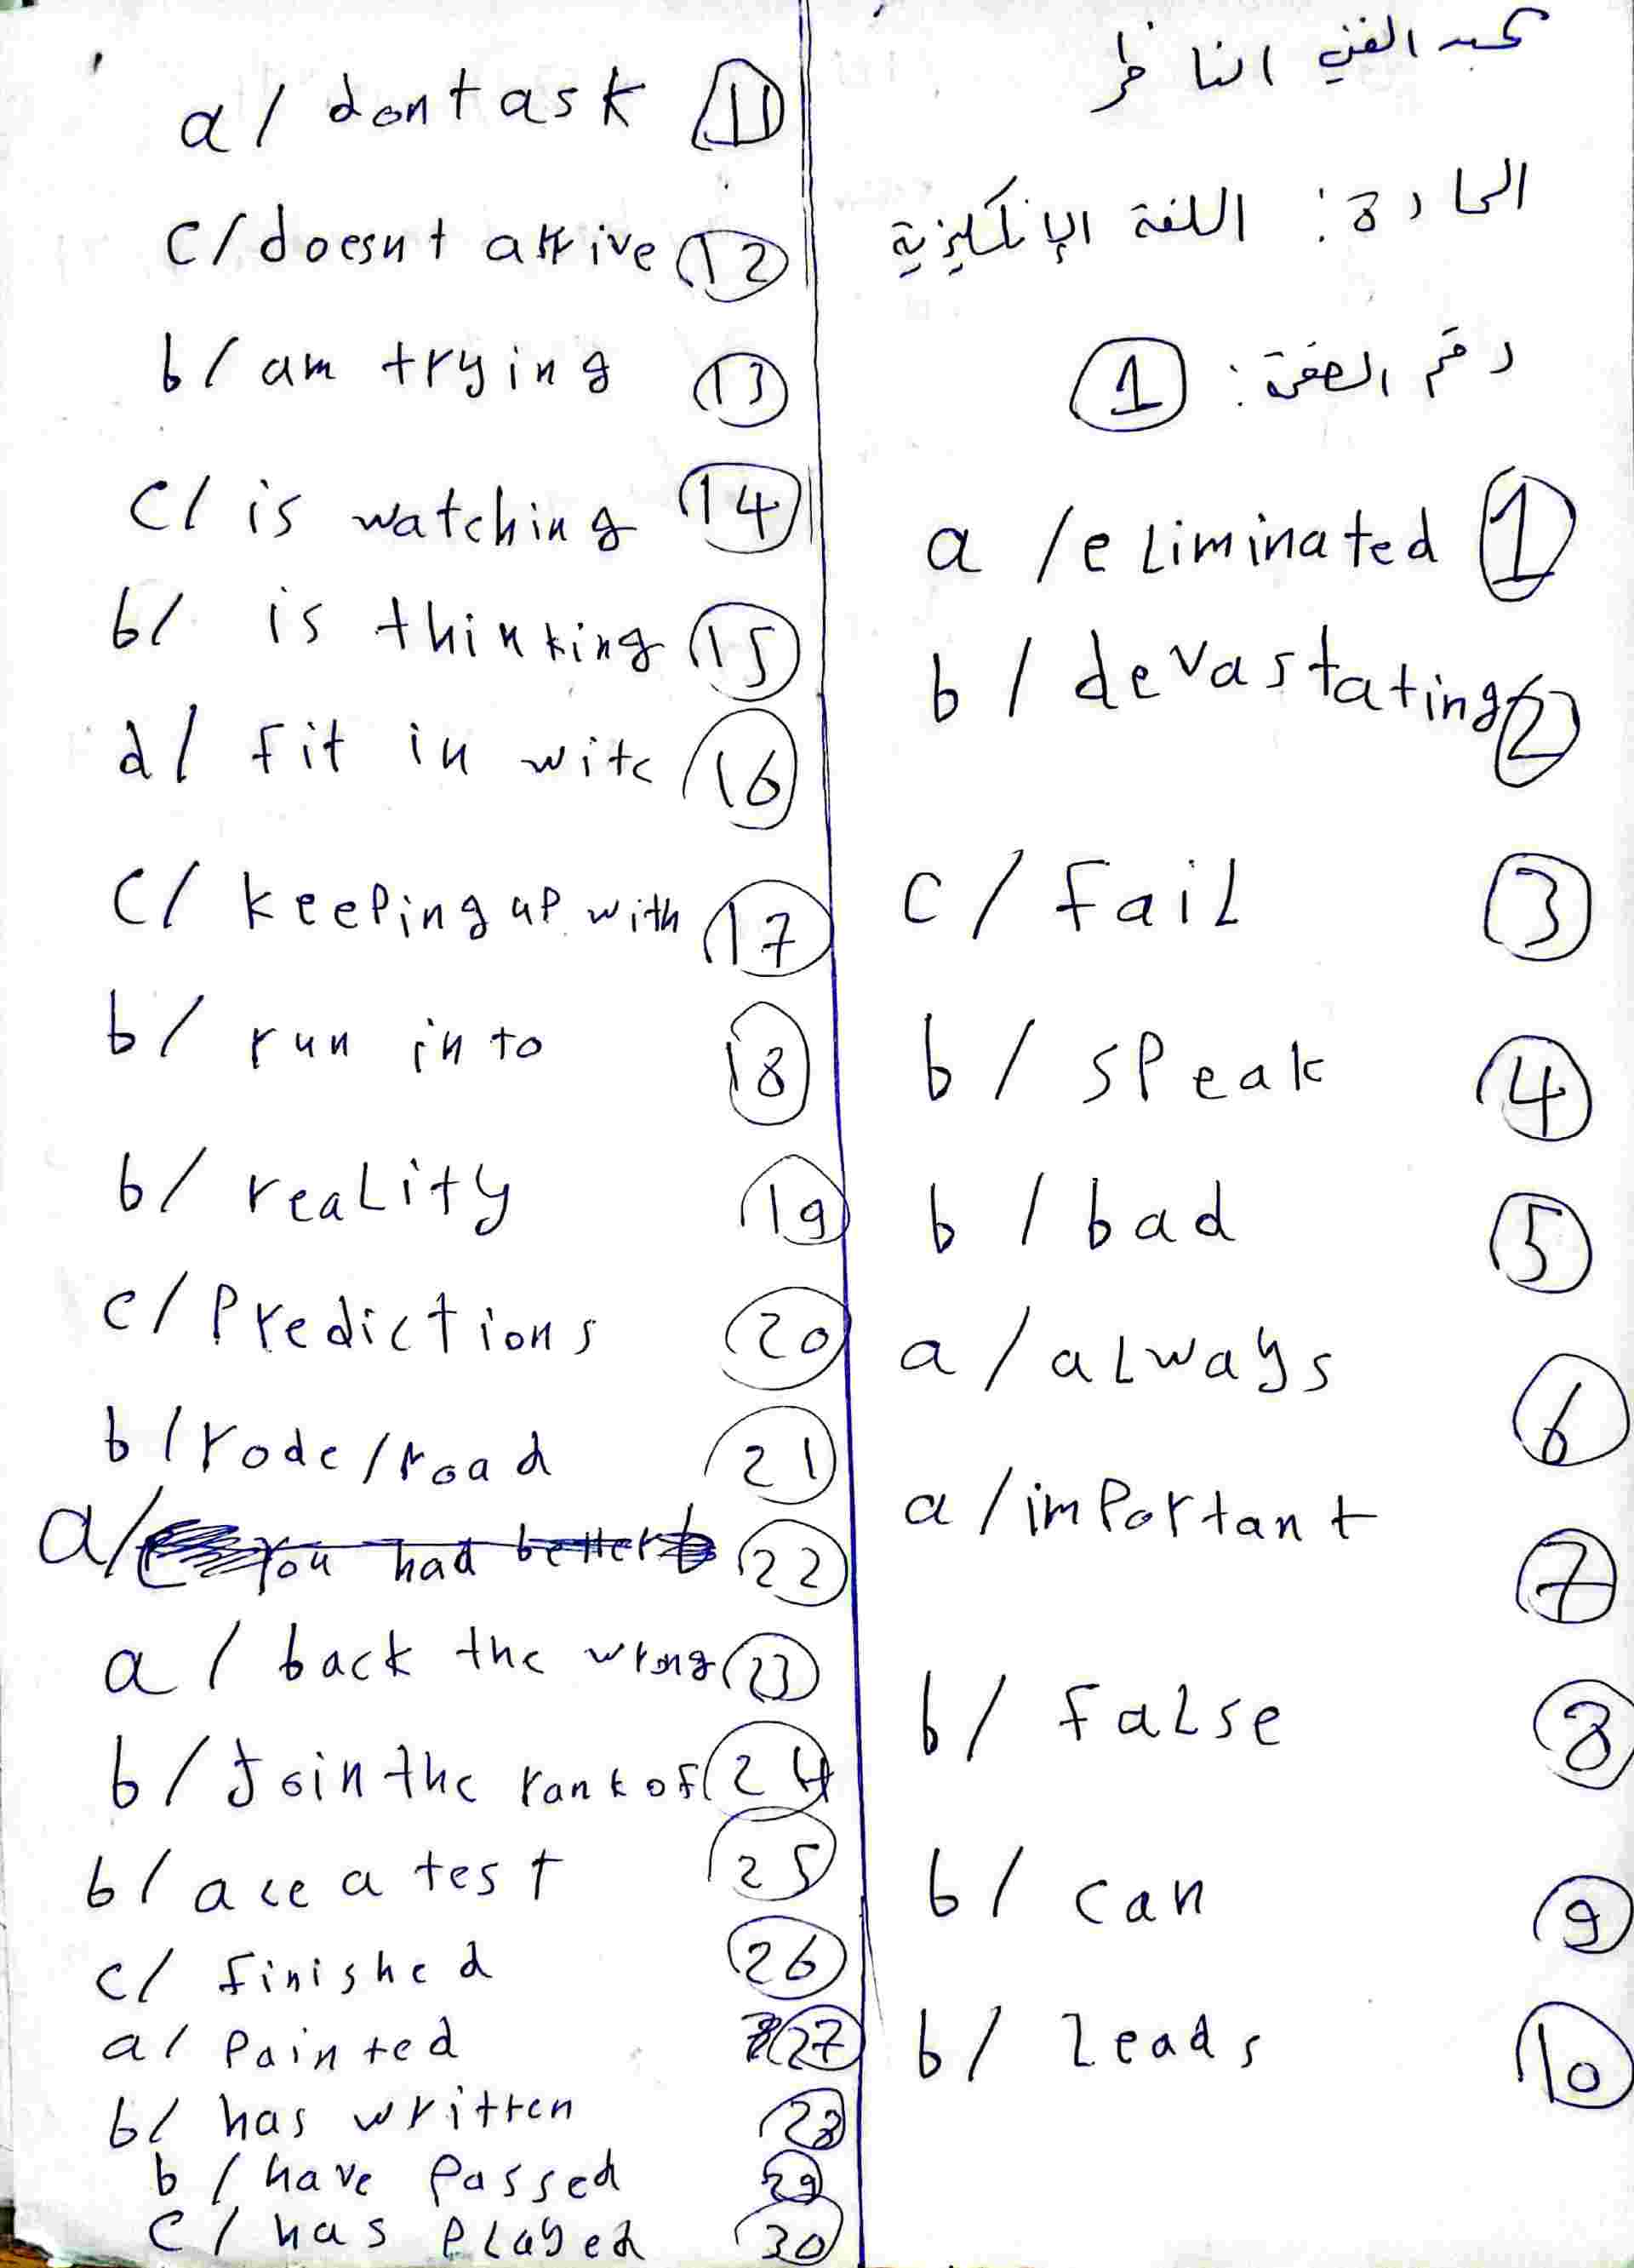 عبد الغني الناظر
المادة: اللغة الإنكليزية
رقم الصفحة: 1
a / eliminated 1
b / devastating 2
c / Fail 3
b / speak 4
b / bad 5
a / always 6
a / important 7
b / False 8
b / can 9
b / leads 10
a / dont ask 11
c / doesnt arrive 12
b / am trying 13
c / is watching 14
b / is thinking 15
d / fit in wite 16
c / keeping up with 17
b / run into 18
b / reality 19
c / Predictions 20
b / rode / road 21
a / You had better 22
a / back the wrong 23
b / Join the rank of 24
b / ace a test 25
c / finished 26
a / Painted 27
b / has written 28
b / have Passed 29
c / has Played 30